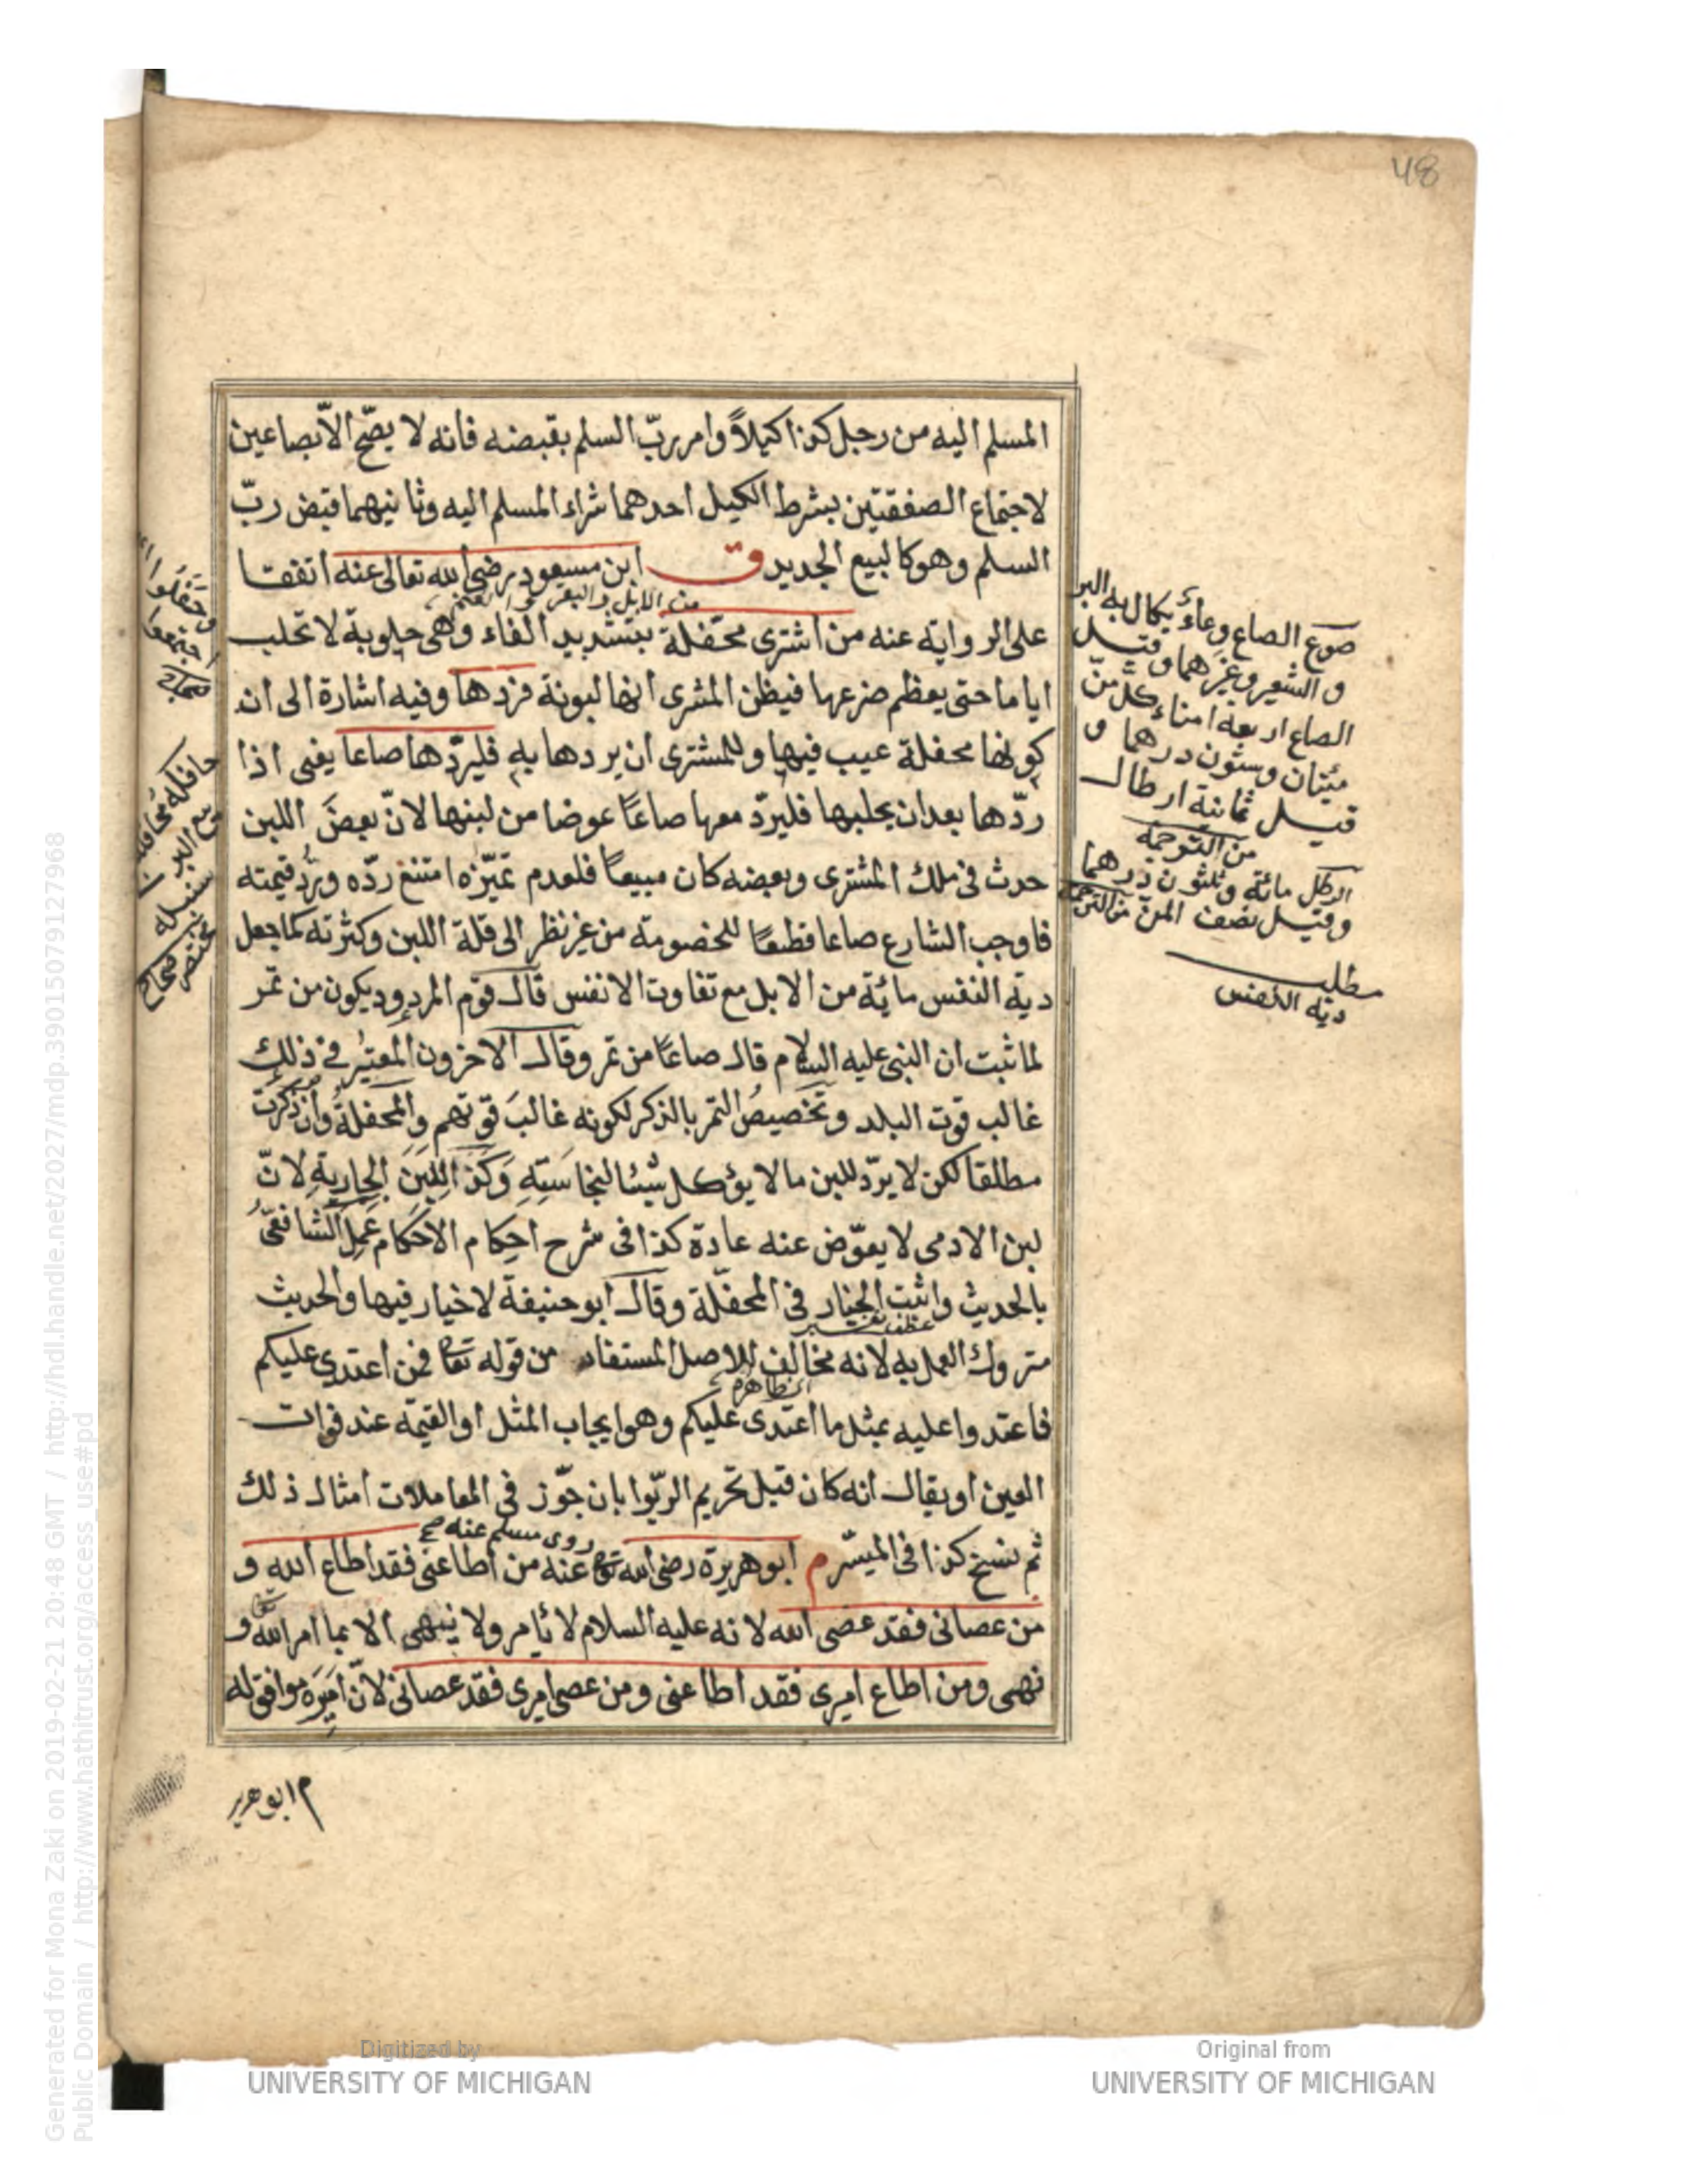 48
المسلم اليه من رجل كذا كيلاً وامر ربّ السلم بقبضه فانه لا يصّح الاّ بصاعين
لاجتماع الصفقتين بشرط الكيل احدهما شراء المسلم اليه وثانيهما قبض ربّ
السلم وهو كالبيع الجديد ق ابن مسعود رضى الله تعالى عنه اتفقا
من الابل والبقر والغنم
على الرواية عنه من اشترى محفّلة بتشديد الفاء وهى حلوبة لا تحلب
اياما حتى يعظم ضرعها فيظن المشرى انها لبونة فردها وفيه اشارة الى ان
كونها محفلة عيب فيها وللمشترى ان يردها به فليردّها صاعا يعنى اذا
ردّها بعد ان يحلبها فليردّ معها صاعًا عوضا من لبنها لانّ بعضَ اللبن
حدث فى ملك المشترى وبعضه كان مبيعًا فلعدم تميّزه امتنع ردّه وردّ قيمته
فاوجب الشارع صاعا قطعًا للخصومة من غير نظر الى قلة اللبن وكثرته كما جعل
دية النفس مائة من الابل مع تفاوت الانفس قال قوم المردود يكون من تمر
لما ثبت ان النبى عليه السلام قال صاعًا من تمر وقال الآخرون المعتبر فى ذلك
غالب قوت البلد وتخصيصُ التمر بالذكر لكونه غالبَ قوتهم والمحفلةُ وأن ذكرت
مطلقا لكن لا يردّ للبن ما لا يؤكل شيئا لنجاسته وكذا اللبن الجارية لانّ
لبن الادمى لا يعوّض عنه عادة كذا فى شرح احكام الاحكام عمل الشافعىُّ
بالحديث واثبت الخيار فى المحفّلة وقال ابو حنيفة لا خيار فيها والحديث
عطف تفسير
متروك العمل به لانه مخالف للاصل المستفاد من قوله تعا فمن اعتدى عليكم
فاعتدوا عليه بمثل ما اعتدى عليكم وهو ايجاب المثل او القيمة عند فوات
العين او يقال انه كان قبل تحريم الربوا بان جوّز فى المعاملات امثال ذلك
روى مسلم عنه صح
ثم نسخ كذا فى الميسّر م ابو هريرة رضى الله تعا عنه من اطاعنى فقد اطاع الله و
من عصانى فقد عصى الله لانه عليه السلام لا يأمر ولا ينهى الا بما امر الله و
نهى ومن اطاع اميرى فقد اطاعنى ومن عصى اميرى فقد عصانى لانّ اميره موافق له
م ابو هرير
صوع الصاع وعاء يكال به البر
و الشعير وغيرهما وقيل
الصاع اربعة امناء كل منّ
مئتان وستون درهما و
قيل ثمانية ارطال
من الترجمة
الرطل مائة وثلثون درهما
وقيل نصف المن من الترجمة
مطلب
دية النفس
وحَفَلُوا
اجتمعوا
Generated for Mona Zaki on 2019-02-21 20:48 GMT / http://hdl.handle.net/2027/mdp.39015079127968
Public Domain / http://www.hathitrust.org/access_use#pd
Digitized by
UNIVERSITY OF MICHIGAN
Original from
UNIVERSITY OF MICHIGAN